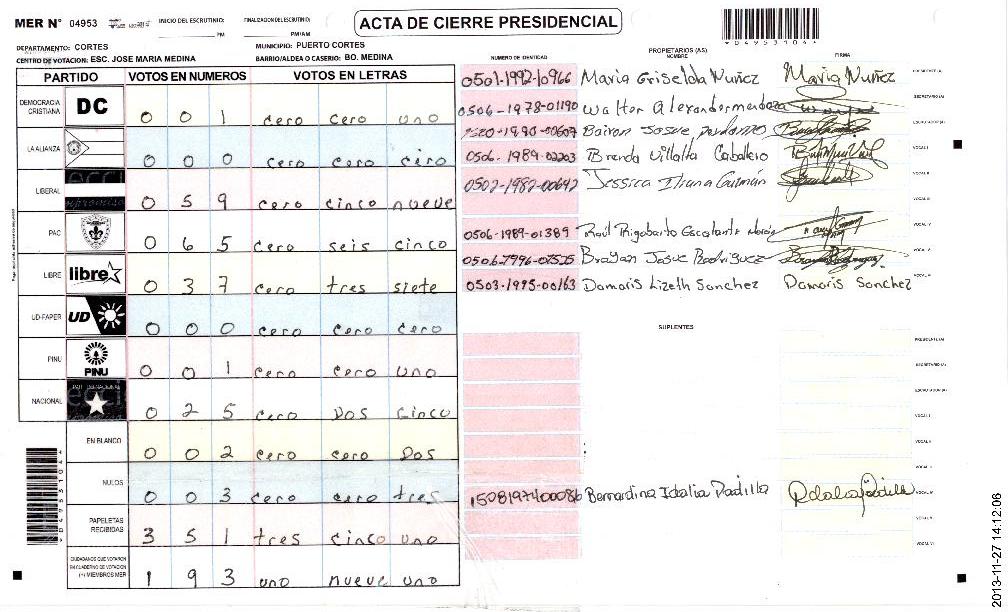 MER N° 04953 INICIO DEL ESCRUTINIO: PM FINALIZACION DEL ESCRUTINIO: PM/AM
ACTA DE CIERRE PRESIDENCIAL
*04953104*
DEPARTAMENTO: CORTES MUNICIPIO: PUERTO CORTES
CENTRO DE VOTACION: ESC. JOSE MARIA MEDINA BARRIO/ALDEA O CASERIO: BO. MEDINA
PARTIDO VOTOS EN NUMEROS VOTOS EN LETRAS
DEMOCRACIA CRISTIANA DC 0 0 1 cero cero uno
LA ALIANZA 0 0 0 cero cero cero
LIBERAL 0 5 9 cero cinco nueve
PAC 0 6 5 cero seis cinco
LIBRE libre 0 3 7 cero tres siete
UD-FAPER UD 0 0 0 cero cero cero
PINU PINU 0 0 1 cero cero uno
NACIONAL 0 2 5 cero Dos cinco
EN BLANCO 0 0 2 cero cero Dos
NULOS 0 0 3 cero cero tres
PAPELETAS RECIBIDAS 3 5 1 tres cinco uno
CIUDADANOS QUE VOTARON EN CUADERNO DE VOTACION (+) MIEMBROS MER 1 9 3 uno nueve uno
PROPIETARIOS (AS)
NUMERO DE IDENTIDAD NOMBRE FIRMA
0501-1992-10966 Maria Griselda Nuñez Maria Nuñez PRESIDENTE (A)
0506-1978-01190 Walter Alexander SECRETARIO (A)
Bairon Josue ESCRUTADOR (A)
0506-1989-02203 Brenda Villalta Caballero VOCAL I
0502-1982-00642 Jessica Iliana Guzmán VOCAL II
VOCAL III
0506-1989-01389 Raúl Rigoberto Escalante VOCAL IV
Brayan Josue Rodriguez VOCAL V
0503-1995-00163 Damaris Lizeth Sanchez Damaris Sanchez
SUPLENTES
PRESIDENTE (A)
SECRETARIO (A)
ESCRUTADOR (A)
VOCAL I
VOCAL II
1508197400086 Bernardina Idalia Padilla VOCAL IV
VOCAL V
VOCAL VI
2013-11-27 14:12:06